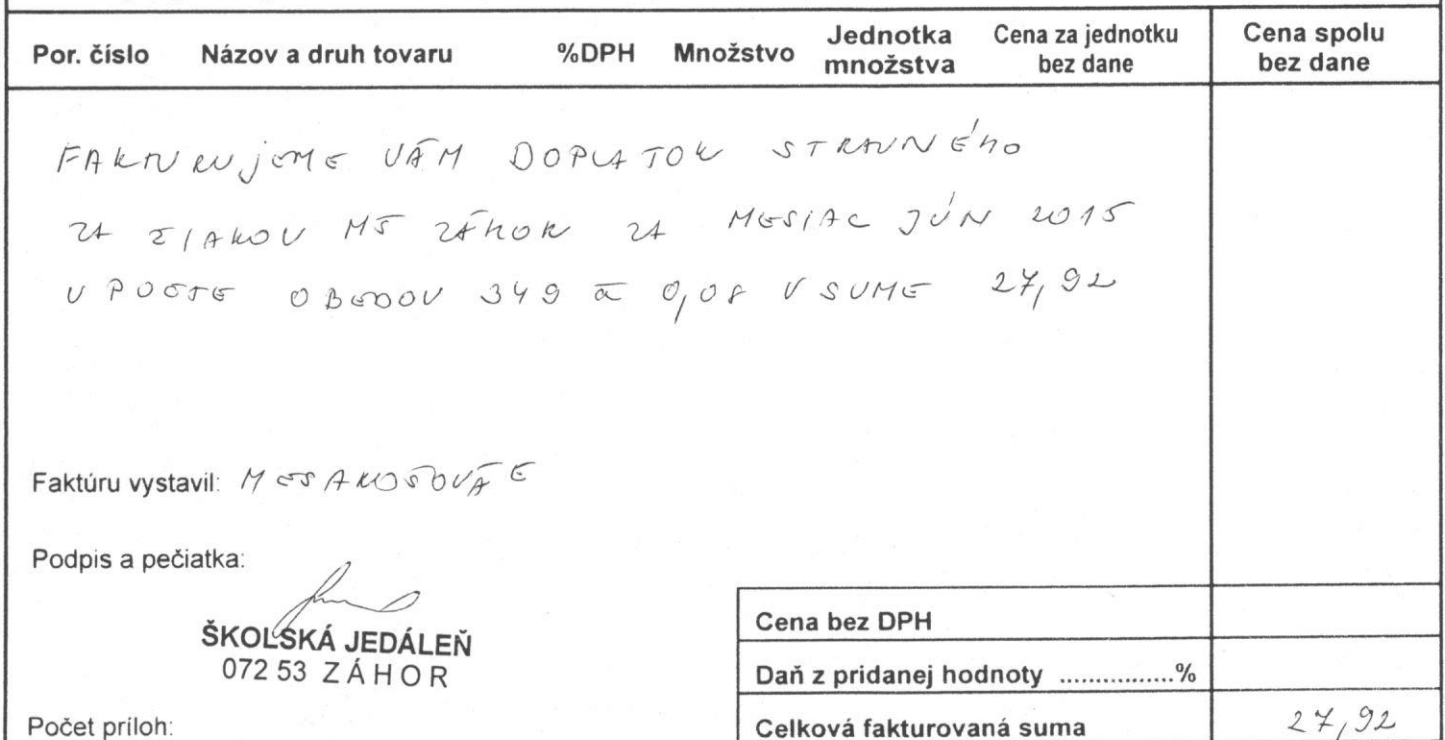 Por. číslo Názov a druh tovaru %DPH Množstvo Jednotka množstva Cena za jednotku bez dane Cena spolu bez dane
FAKTURUJEME VÁM DOPLATOK STRAVNÉHO
ZA ŽIAKOV MŠ ZÁHOR ZA MESIAC JÚN 2015
V POČTE OBEDOV 349 à 0,08 V SUME 27,92
Faktúru vystavil:
Podpis a pečiatka:
ŠKOLSKÁ JEDÁLEŇ
072 53 ZÁHOR
Počet príloh:
Cena bez DPH
Daň z pridanej hodnoty ................%
Celková fakturovaná suma 27,92